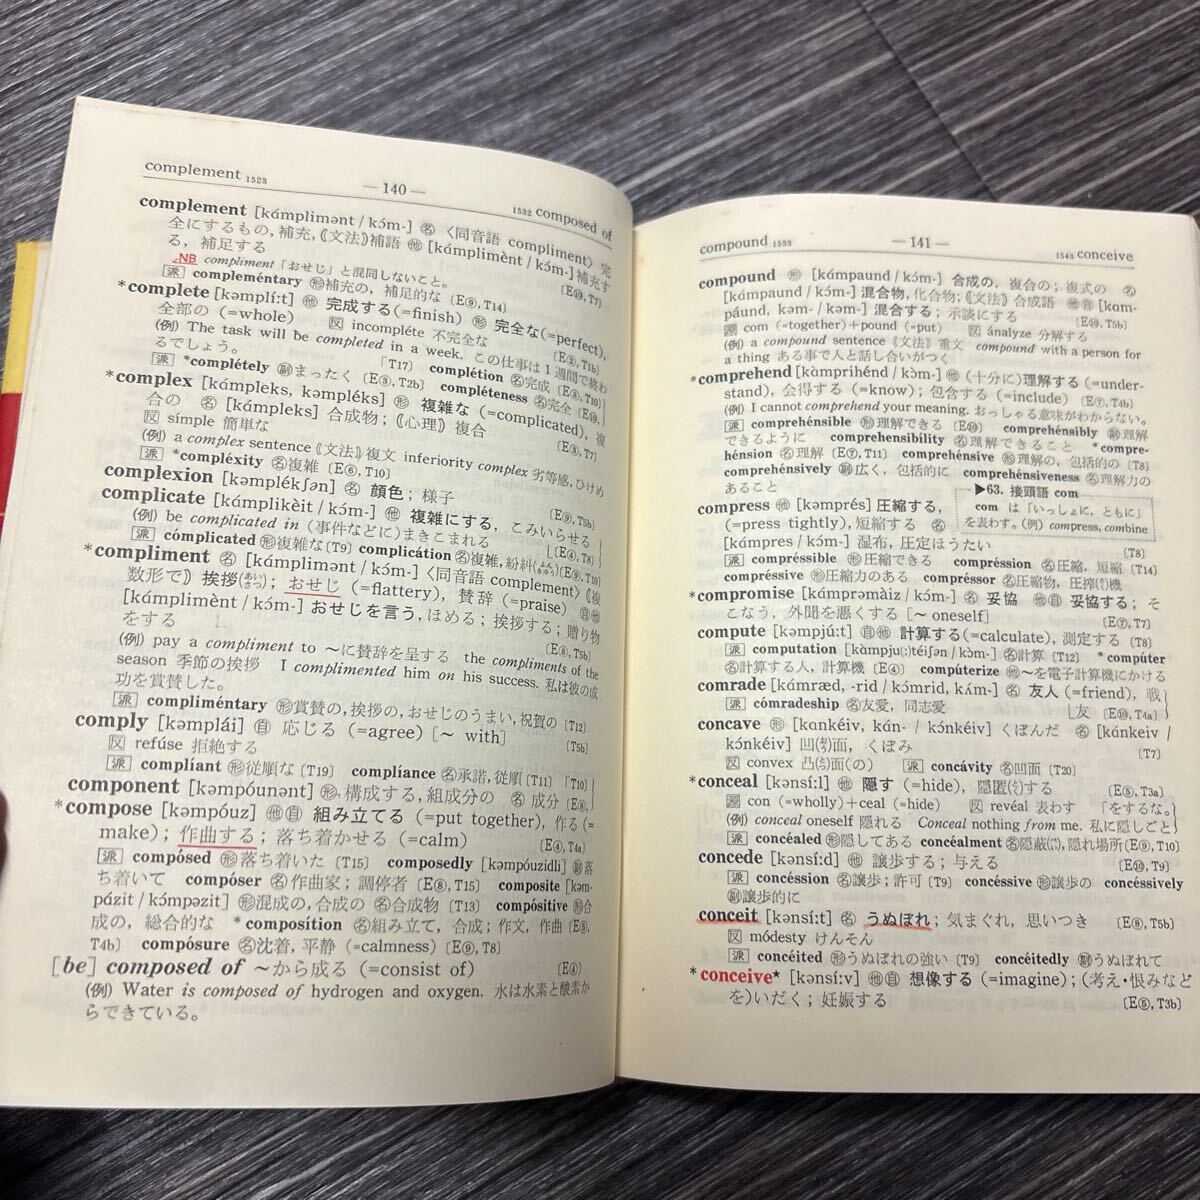 complement 1523
— 140 —
1532 composed of
complement [kámplimənt / kɔ́m-] 名〈同音語 compliment〉完
全にするもの,補充,《文法》補語 他 [kámplimènt / kɔ́m-] 補充す
る, 補足する [E⑩, T7]
NB compliment「おせじ」と混同しないこと。
派 compleméntary 形補充の, 補足的な [E⑨, T14]
*complete [kəmplí:t] 他 完成する(=finish) 形 完全な(=perfect),
全部の (=whole) 図 incompléte 不完全な [E②, T1b]
(例) The task will be completed in a week. この仕事は1週間で終わ
るでしょう。 「T17] complétion 名完成 [E⑧, T10]
派 *complétely 副まったく [E③, T2b] compléteness 名完全 [E⑩,
*complex [kámpleks, kəmpléks] 形 複雑な (=complicated), 複
合の 名 [kámpleks] 合成物;《心理》複合 [E⑧, T7]
図 símple 簡単な
(例) a complex sentence《文法》複文 inferiority complex 劣等感,ひけめ
派 *compléxity 名複雑 [E⑥, T10]
complexion [kəmplékʃən] 名 顔色; 様子 [E⑨, T5b]
complicate [kámplikèit / kɔ́m-] 他 複雑にする, こみいらせる
(例) be complicated in (事件などに)まきこまれる [E④, T8]
派 cómplicated 形複雑な[T9] complicátion 名複雑,紛糾(ふんきゅう)[E⑨, T10]
*compliment 名 [kámplimənt / kɔ́m-]〈同音語 complement〉《複
数形で》挨拶(あいさつ); おせじ (=flattery), 賛辞 (=praise) 自他
[kámplimènt / kɔ́m-] おせじを言う, ほめる; 挨拶する; 贈り物
をする [E⑧, T5b]
(例) pay a compliment to ～に賛辞を呈する the compliments of the
season 季節の挨拶 I complimented him on his success. 私は彼の成
功を賞賛した。
派 compliméntary 形賞賛の, 挨拶の, おせじのうまい, 祝賀の [T12]
comply [kəmplái] 自 応じる (=agree) [～ with] [T5b]
図 refúse 拒絶する
派 complíant 形従順な [T19] complíance 名承諾, 従順 [T11] 「T10]
component [kəmpóunənt] 形, 構成する, 組成分の 名 成分 [E⑧,
*compose [kəmpóuz] 他自 組み立てる (=put together), 作る (=
make); 作曲する; 落ち着かせる (=calm) [E④, T4a]
派 compósed 形落ち着いた [T15] composedly [kəmpóuzidli] 副落
ち着いて compóser 名作曲家; 調停者 [E⑧, T15] composite [kəm-
pázit / kɔ́mpəzit] 形混成の, 合成の 名合成物 [T13] compósitive 形合
成の, 総合的な *composítion 名組み立て, 合成; 作文, 作曲 [E⑤,
T4b] compósure 名沈着, 平静 (=calmness) [E⑨, T8]
[be] composed of ～から成る (=consist of) [E④]
(例) Water is composed of hydrogen and oxygen. 水は水素と酸素か
らできている。
compound 1533
— 141 —
1543 conceive
compound 形 [kámpaund / kɔ́m-] 合成の, 複合の; 複式の 名
[kámpaund / kɔ́m-] 混合物, 化合物;《文法》合成語 他自 [kəm-
páund, kəm- / kəm-] 混合する; 示談にする [E⑩, T5b]
源 com (=together)+pound (=put) 図 ánalyze 分解する
(例) a compound sentence《文法》重文 compound with a person for
a thing ある事で人と話し合いがつく
*comprehend [kàmprihénd / kɔ̀m-] 他 (十分に)理解する (=under-
stand), 会得する (=know); 包含する (=include) [E⑦, T4b]
(例) I cannot comprehend your meaning. おっしゃる意味がわからない。
派 comprehénsible 形理解できる [E⑩] comprehénsibly 副理解
できるように comprehensibílity 名理解できること *compre-
hénsion 名理解 [E⑦, T11] comprehénsive 形理解の, 包括的の [T8]
comprehénsively 副広く, 包括的に comprehénsiveness 名理解力の
あること
▶63. 接頭語 com
com は「いっしょに, ともに」
を表わす。(例) compress, combine
compress 他 [kəmprés] 圧縮する,
(=press tightly), 短縮する 名
[kámpres / kɔ́m-] 湿布, 圧定ほうたい [T8]
派 compréssible 形圧縮できる compréssion 名圧縮, 短縮 [T14]
compréssive 形圧縮力のある compréssor 名圧縮物, 圧搾(さく)機
*compromise [kámprəmàiz / kɔ́m-] 名 妥協 他自 妥協する; そ
こなう, 外聞を悪くする [～ oneself] [E⑦, T7]
compute [kəmpjú:t] 自他 計算する(=calculate), 測定する [T8]
派 computation [kàmpju(:)téiʃən / kɔ̀m-] 名計算 [T12] *compúter
名計算する人, 計算機 [E④] compúterize 他～を電子計算機にかける
comrade [kámræd, -rid / kɔ́mrid, kʌ́m-] 名 友人 (=friend), 戦
派 cómradeship 名友愛, 同志愛 友 [E⑩, T4a]
concave 形 [kɑnkéiv, kán- / kɔ́nkéiv] くぼんだ 名 [kánkeiv /
kɔ́nkéiv] 凹(おう)面, くぼみ [T7]
図 convex 凸(とつ)面(の) 派 concávity 名凹面 [T20]
*conceal [kənsí:l] 他 隠す (=hide), 隠匿(とく)する [E⑤, T3a]
源 con (=wholly)+ceal (=hide) 図 revéal 表わす 「をするな。
(例) conceal oneself 隠れる Conceal nothing from me. 私に隠しごと
派 concéaled 形隠してある concéalment 名隠蔽(ぺい), 隠れ場所 [E⑨, T10]
concede [kənsí:d] 他 譲歩する; 与える [E⑩, T9]
派 concéssion 名譲歩; 許可 [T9] concéssive 形譲歩の concéssively
副譲歩的に
conceit [kənsí:t] 名 うぬぼれ; 気まぐれ, 思いつき [E⑧, T5b]
図 módesty けんそん
派 concéited 形うぬぼれの強い [T9] concéitedly 副うぬぼれて
*conceive* [kənsí:v] 他自 想像する (=imagine); (考え・恨みなど
を)いだく; 妊娠する [E⑤, T3b]